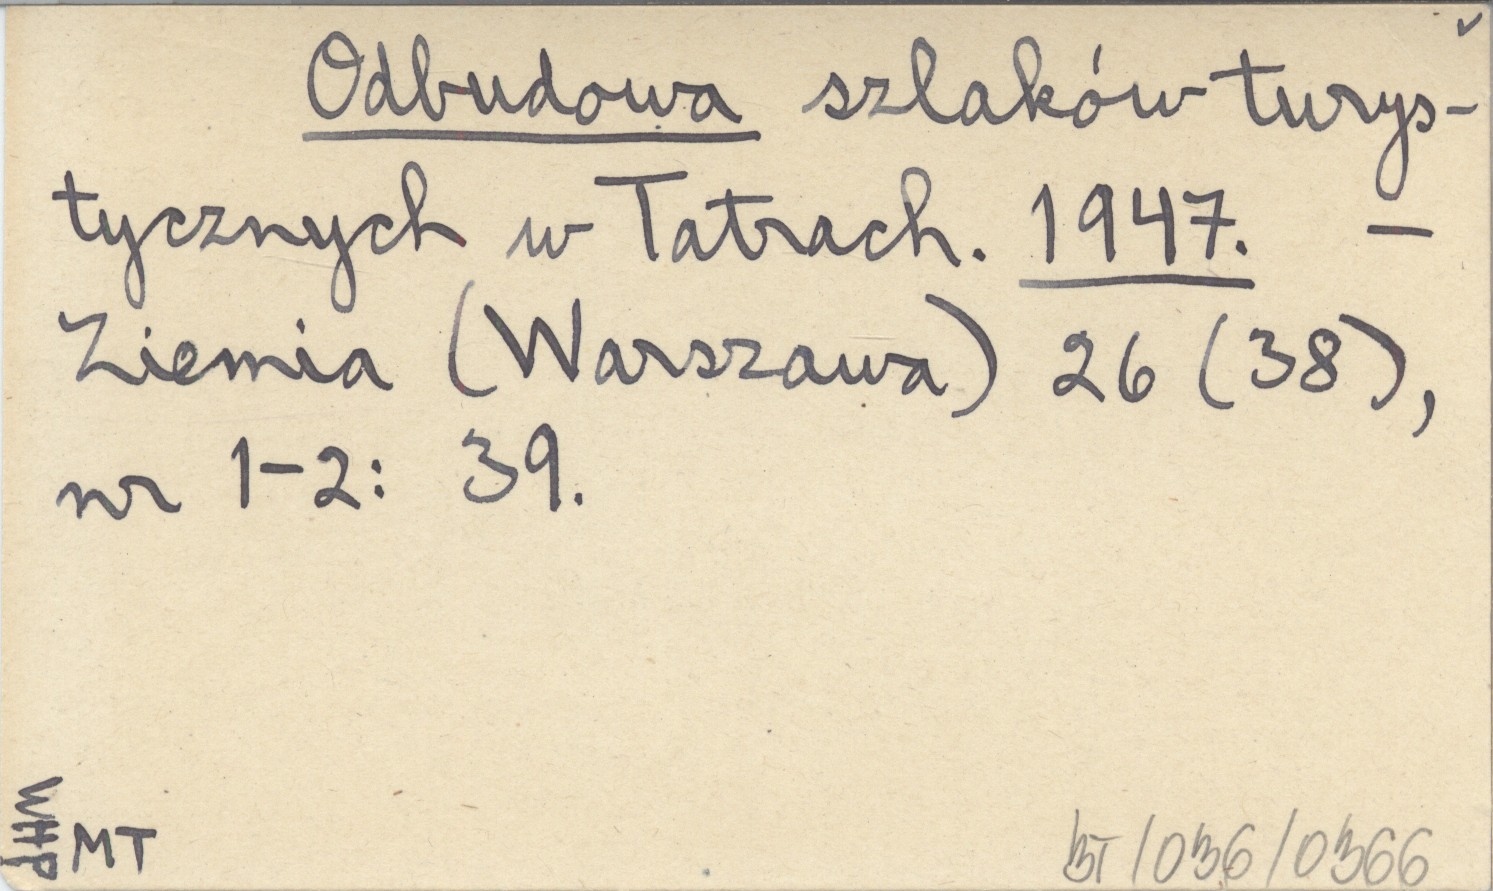 Odbudowa szlaków turys-
tycznych w Tatrach. 1947. –
Ziemia (Warszawa) 26 (38),
nr 1-2: 39.
WHP
MT
BT/036/0366